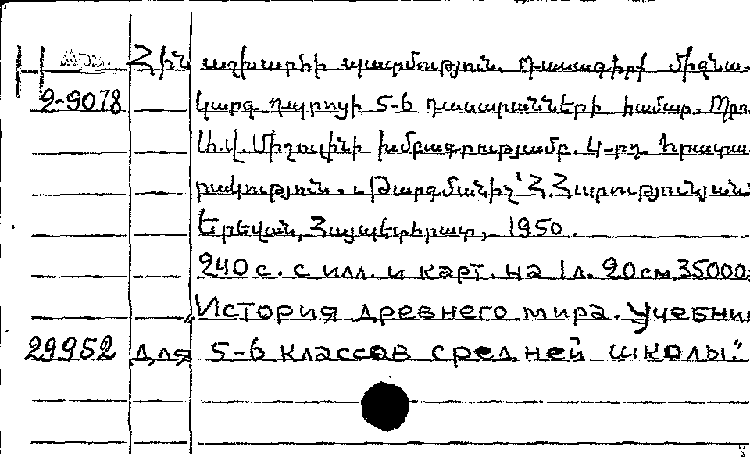 Հին աշխարհի պատմություն. Դասագիրք միջնա-
2-9078 կարգ դպրոցի 5-6 դասարանների համար. Պրո
Ա.վ. Միշուլինի խմբագրությամբ. 4-րդ հրատա-
րակություն. Թարգմանիչ՝ Հ. Հարությունյան
Երևան, Հայպետհրատ, 1950.
240 с. с илл. и карт. на 1 л. 20 см 35000
„История древнего мира. Учебник
29952 для 5-6 классов средней школы".